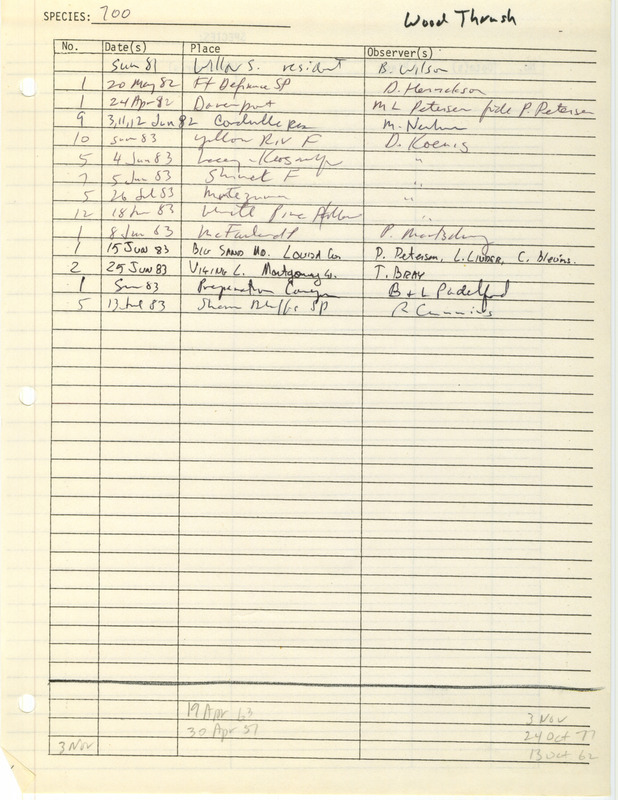 SPECIES: 700
Wood Thrush
No. Date(s) Place Observer(s)
Sum 81 Union S. resident B. Wilson
1 20 May 82 Ft Defiance SP D. Henrickson
1 24 Apr 82 Davenport M L Petersen fide P. Petersen
9 3,11,12 Jun 82 Cordville Res M. Newlon
10 Sum 83 Yellow Riv F D. Koenig
5 4 Jun 83 Lacey - Keosauqua "
7 5 Jun 83 Shimek F "
5 26 Jul 83 Montezuma "
12 18 Jun 83 White Pine Hollow "
1 8 Jun 83 McFarland P P. Martsching
1 15 JUN 83 BIG SAND MD. LOUISA Co. P. Petersen, L. LINDER, C. Blevins.
2 25 JUN 83 VIKING L. Montgomery Co. T. BRAY
1 Sum 83 Preparation Canyon B + L Padelford
5 13 Jul 83 Sharon Bluffs SP R Cummins
19 Apr 63 3 Nov
30 Apr 57 24 Oct 77
3 Nov 13 Oct 62